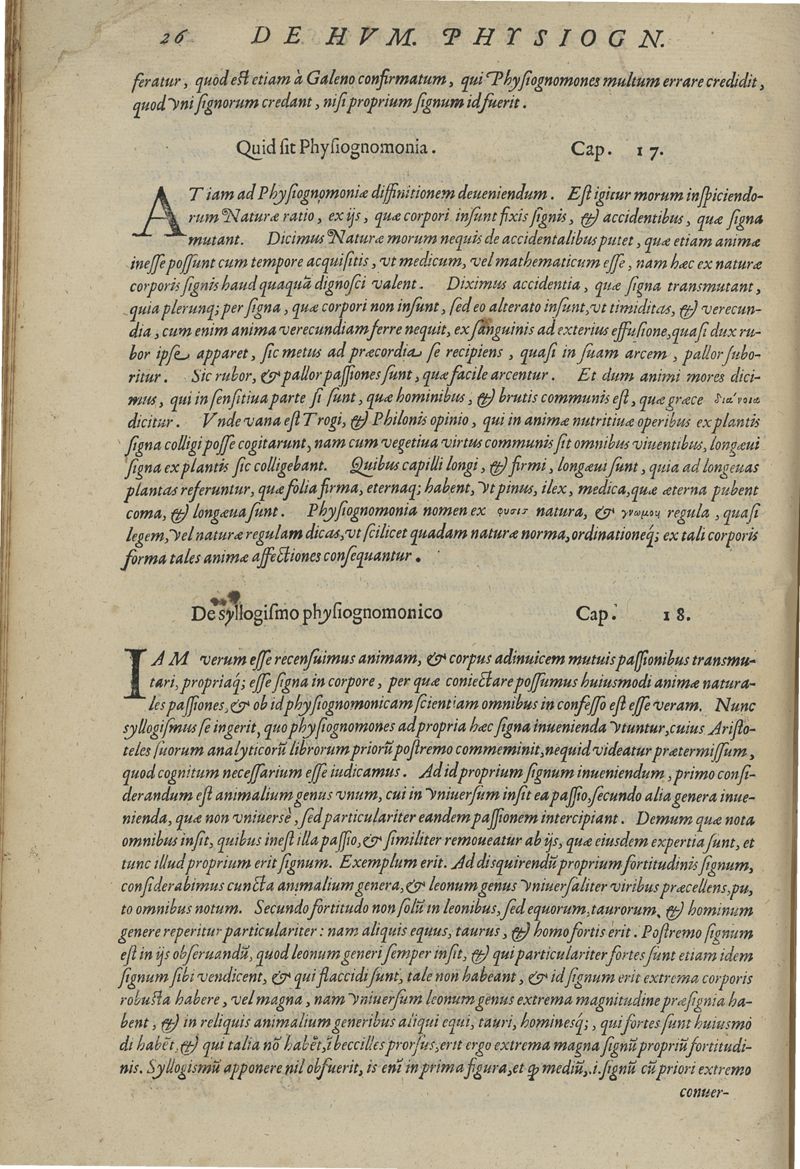 26 DE HVM. PHYSIOGN.
feratur, quod est etiam à Galeno confirmatum, qui Physiognomones multum errare credidit,
quod vni signorum credant, nisi proprium signum id fuerit.
Quid sit Physiognomonia. Cap. 17.
AT iam ad Physiognomoniæ diffinitionem deueniendum. Est igitur morum inspiciendo-
rum Naturæ ratio, ex ijs, quæ corpori insunt fixis signis, & accidentibus, quæ signa
mutant. Dicimus Naturæ morum nequis de accidentalibus putet, quæ etiam animæ
inesse possunt cum tempore acquisitis, vt medicum, vel mathematicum esse, nam hæc ex naturæ
corporis signis haud quaquã dignosci valent. Diximus accidentia, quæ signa transmutant,
quia plerunq; per signa, quæ corpori non insunt, sed eo alterato insunt, vt timiditas, & verecun-
dia, cum enim anima verecundiam ferre nequit, ex sanguinis ad exterius effusione, quasi dux ru-
bor ipse apparet, sic metus ad præcordia se recipiens, quasi in suam arcem, pallor subo-
ritur. Sic rubor, & pallor passiones sunt, quæ facile arcentur. Et dum animi mores dici-
mus, qui in sensitiua parte si sunt, quæ hominibus, & brutis communis est, quæ græce διάνοια
dicitur. Vnde vana est Trogi, & Philonis opinio, qui in animæ nutritiuæ operibus ex plantis
signa colligi posse cogitarunt, nam cum vegetiua virtus communis sit omnibus viuentibus, longæui
signa ex plantis sic colligebant. Quibus capilli longi, & firmi, longæui sunt, quia ad longeuas
plantas referuntur, quæ folia firma, eternaq; habent, vt pinus, ilex, medica, quæ æterna pubent
coma, & longæua sunt. Physiognomonia nomen ex φυσις natura, & γνωμον regula, quasi
legem, vel naturæ regulam dicas, vt scilicet quadam naturæ norma, ordinationeq́; ex tali corporis
forma tales animæ affectiones consequantur.
De syllogismo physiognomonico Cap. 18.
IAM verum esse recensuimus animam, & corpus adinuicem mutuis passionibus transmu-
tari, propriaq́; esse signa in corpore, per quæ coniectare possumus huiusmodi animæ natura-
les passiones, & ob id physiognomonicam scientiam omnibus in confesso est esse veram. Nunc
syllogismus se ingerit, quo physiognomones ad propria hæc signa inuenienda vtuntur, cuius Aristo-
teles suorum analyticorũ librorum priorũ postremo commeminit, nequid videatur prætermissum,
quod cognitum necessarium esse iudicamus. Ad id proprium signum inueniendum, primo consi-
derandum est animalium genus vnum, cui in vniuersum insit ea passio, secundo alia genera inue-
nienda, quæ non vniuersè, sed particulariter eandem passionem intercipiant. Demum quæ nota
omnibus insit, quibus inest illa passio, & similiter remoueatur ab ijs, quæ eiusdem expertia sunt, et
tunc illud proprium erit signum. Exemplum erit. Ad disquirendũ proprium fortitudinis signum,
considerabimus cuncta animalium genera, & leonum genus vniuersaliter viribus præcellens, pu,
to omnibus notum. Secundo fortitudo non solũ in leonibus, sed equorum, taurorum, & hominum
genere reperitur particulariter: nam aliquis equus, taurus, & homo fortis erit. Postremo signum
est in ijs obseruandũ, quod leonum generi semper insit, & qui particulariter fortes sunt etiam idem
signum sibi vendicent, & qui flaccidi sunt, tale non habeant, & id signum erit extrema corporis
robusta habere, vel magna, nam vniuersum leonum genus extrema magnitudine præsignia ha-
bent, & in reliquis animalium generibus aliqui equi, tauri, hominesq́;, qui fortes sunt huiusmo
di habẽt, & qui talia nõ habẽt, ĩbeccilles prorsus, erit ergo extrema magna signũ propriũ fortitudi-
nis. Syllogismũ apponere nil obfuerit, is enĩ in prima figura, et ꝙ mediũ, .i. signũ cũ priori extremo
conuer-